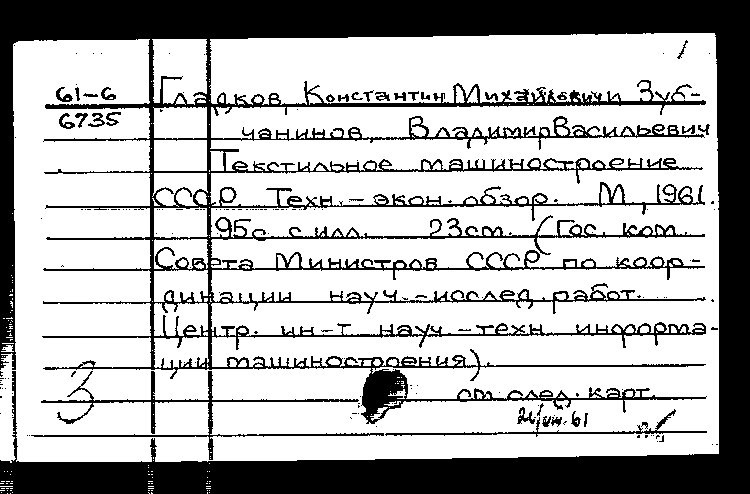 1
61-6 Гладков, Константин Михайлович и Зуб-
6735
чанинов, Владимир Васильевич
Текстильное машиностроение
СССР. Техн.-экон. обзор. М., 1961.
95с. с илл. 23см. (Гос. ком.
Совета Министров СССР по коор-
динации науч.-исслед. работ.
Центр. ин-т науч.-техн. информа-
ции машиностроения).
3
см. след. карт.